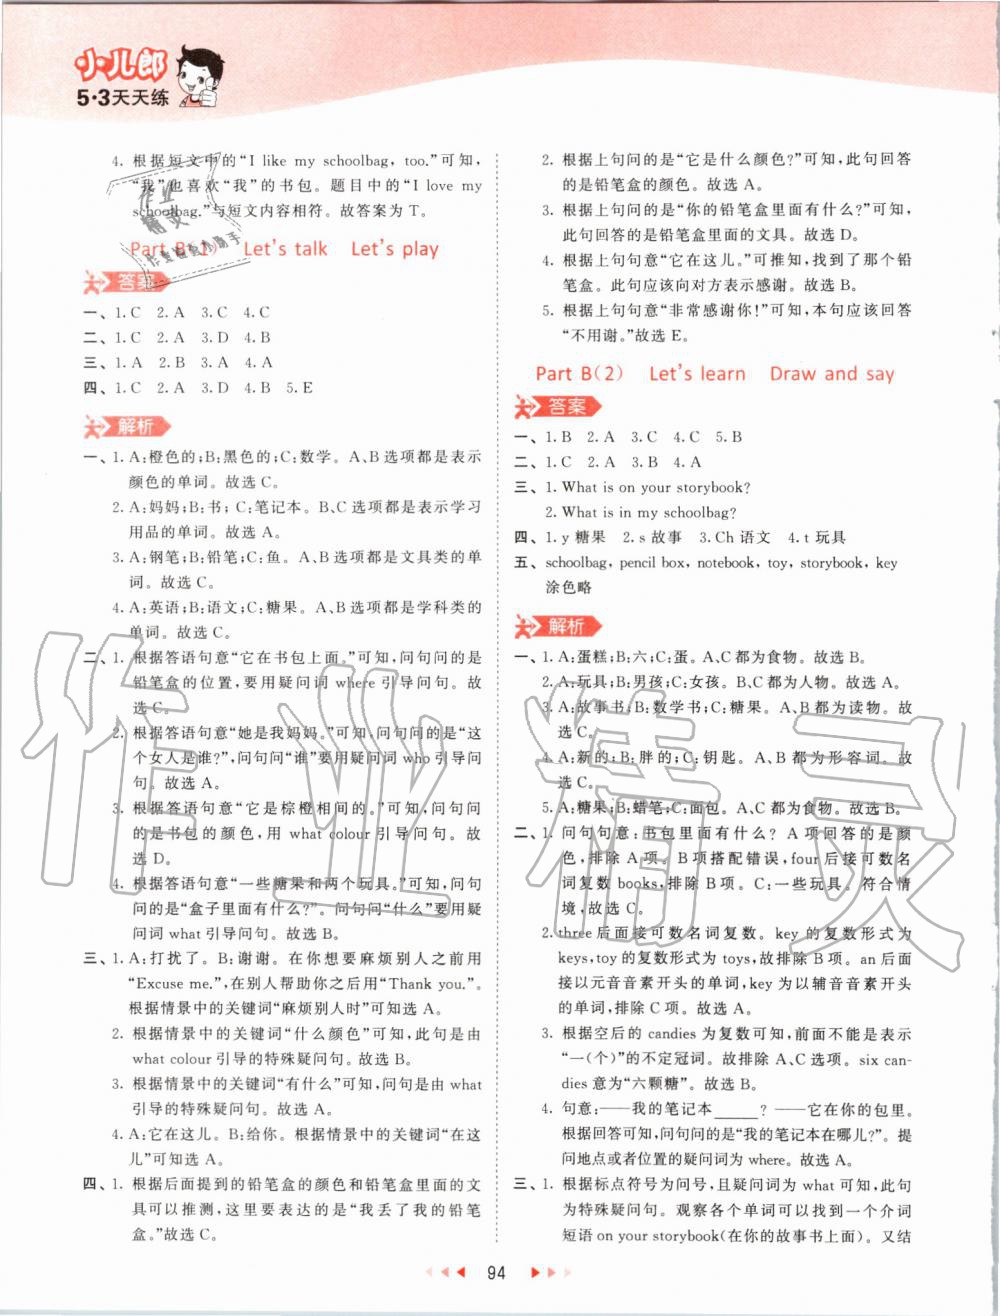 小儿郎
5·3天天练
4. 根据短文中的“I like my schoolbag, too.”可知,
“我”也喜欢“我”的书包。题目中的“I love my
schoolbag.”与短文内容相符。故答案为T。
Part B(1) Let's talk Let's play
答案
一、1. C 2. A 3. C 4. C
二、1. C 2. A 3. D 4. B
三、1. A 2. B 3. A 4. A
四、1. C 2. A 3. D 4. B 5. E
解析
一、1. A:橙色的;B:黑色的;C:数学。A、B选项都是表示
颜色的单词。故选C。
2. A:妈妈;B:书;C:笔记本。B、C选项都是表示学习
用品的单词。故选A。
3. A:钢笔;B:铅笔;C:鱼。A、B选项都是文具类的单
词。故选C。
4. A:英语;B:语文;C:糖果。A、B选项都是学科类的
单词。故选C。
二、1. 根据答语句意“它在书包上面。”可知,问句问的是
铅笔盒的位置,要用疑问词where引导问句。故
选C。
2. 根据答语句意“她是我妈妈。”可知,问句问的是“这
个女人是谁?”,问句问“谁”要用疑问词who引导问
句。故选A。
3. 根据答语句意“它是棕橙相间的。”可知,问句问的
是书包的颜色,用what colour引导问句。故
选D。
4. 根据答语句意“一些糖果和两个玩具。”可知,问句
问的是“盒子里面有什么?”。问句问“什么”要用疑
问词what引导问句。故选B。
三、1. A:打扰了。B:谢谢。在你想要麻烦别人之前用
“Excuse me.”,在别人帮助你之后用“Thank you.”。
根据情景中的关键词“麻烦别人时”可知选A。
2. 根据情景中的关键词“什么颜色”可知,此句是由
what colour引导的特殊疑问句。故选B。
3. 根据情景中的关键词“有什么”可知,问句是由what
引导的特殊疑问句。故选A。
4. A:它在这儿。B:给你。根据情景中的关键词“在这
儿”可知选A。
四、1. 根据后面提到的铅笔盒的颜色和铅笔盒里面的文
具可以推测,这里要表达的是“我丢了我的铅笔
盒。”故选C。
2. 根据上句问的是“它是什么颜色?”可知,此句回答
的是铅笔盒的颜色。故选A。
3. 根据上句问的是“你的铅笔盒里面有什么?”可知,
此句回答的是铅笔盒里面的文具。故选D。
4. 根据上句句意“它在这儿。”可推知,找到了那个铅
笔盒。此句应该向对方表示感谢。故选B。
5. 根据上句句意“非常感谢你!”可知,本句应该回答
“不用谢。”故选E。
Part B(2) Let's learn Draw and say
答案
一、1. B 2. A 3. C 4. C 5. B
二、1. C 2. A 3. B 4. A
三、1. What is on your storybook?
2. What is in my schoolbag?
四、1. y 糖果 2. s 故事 3. Ch 语文 4. t 玩具
五、schoolbag, pencil box, notebook, toy, storybook, key
涂色略
解析
一、1. A:蛋糕;B:六;C:蛋。A、C都为食物。故选B。
2. A:玩具;B:男孩;C:女孩。B、C都为人物。故选A。
3. A:故事书;B:数学书;C:糖果。A、B都为读物。故
选C。
4. A:新的;B:胖的;C:钥匙。A、B都为形容词。故
选C。
5. A:糖果;B:蜡笔;C:面包。A、C都为食物。故选B。
二、1. 问句句意:书包里面有什么?A项回答的是颜
色,排除A项。B项搭配错误,four后接可数名
词复数books,排除B项。C:一些玩具。符合情
境,故选C。
2. three后面接可数名词复数。key的复数形式为
keys,toy的复数形式为toys,故排除B项。an后面
接以元音音素开头的单词,key为以辅音音素开头
的单词,排除C项。故选A。
3. 根据空后的candies为复数可知,前面不能是表示
“一(个)”的不定冠词。故排除A、C选项。six can-
dies意为“六颗糖”。故选B。
4. 句意:——我的笔记本______?——它在你的包里。
根据回答可知,问句问的是“我的笔记本在哪儿?”。提
问地点或者位置的疑问词为where。故选A。
三、1. 根据标点符号为问号,且疑问词为what可知,此句
为特殊疑问句。观察各个单词可以找到一个介词
短语on your storybook(在你的故事书上面)。又结
94
作业精灵
作业精灵